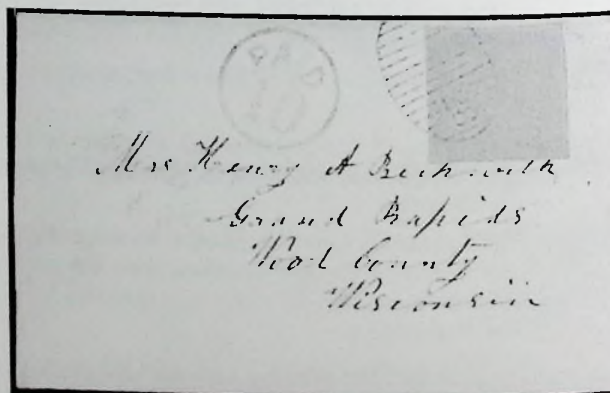 PAID
10
Mrs Henry A Beckwith
Grand Rapids
Wood County
Wisconsin